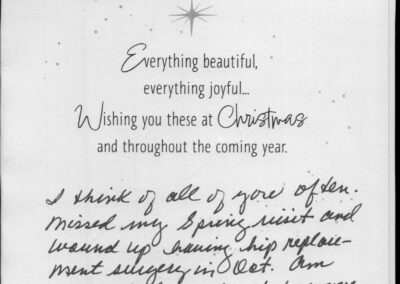 Everything beautiful,
everything joyful...
Wishing you these at Christmas
and throughout the coming year.
I think of all of you often.
Missed my Spring visit and
wound up having hip replace-
ment surgery in Oct. Am